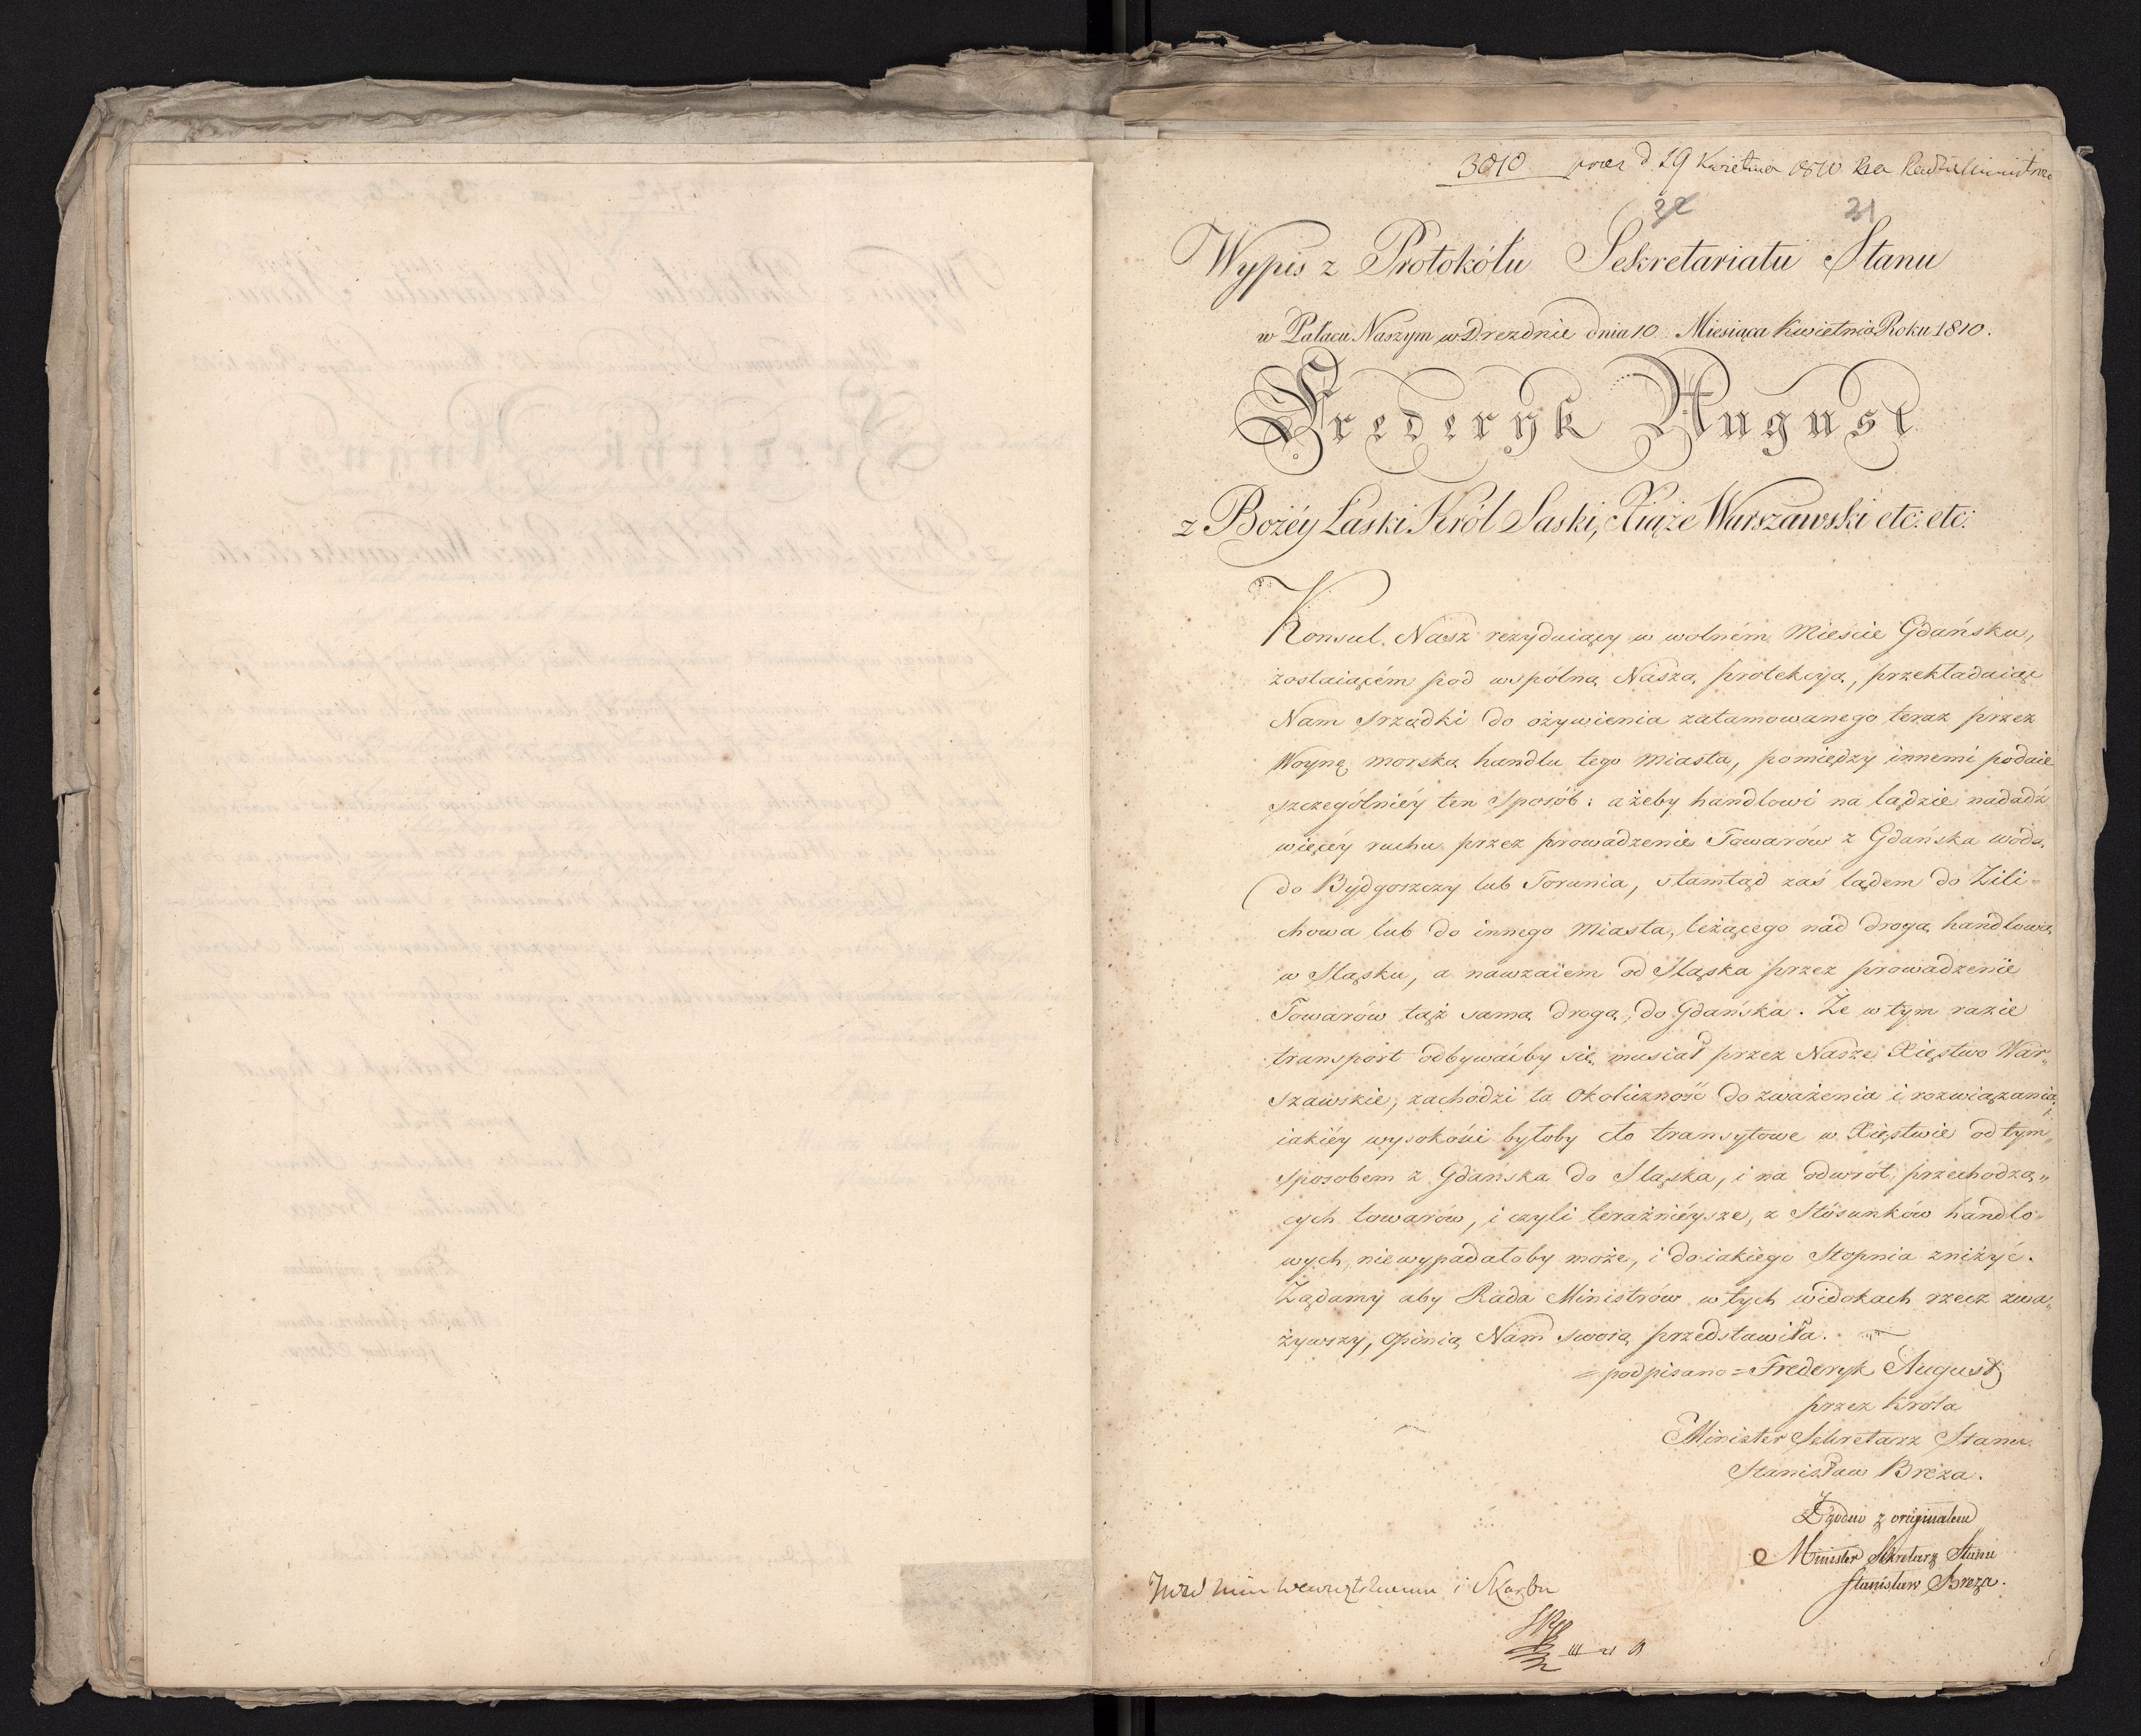 3010 praes d. 29 Kwietnia 1810 Rada Ministrow
32 31
Wypis z Protokółu Sekretariatu Stanu
w Pałacu Naszym w Dreźdnie dnia 10 Miesiąca Kwietnia Roku 1810.
Frederyk August
z Bożéy Łaski Król Saski, Xiąże Warszawski etc: etc:
Konsul Nasz rezyduiący w wolném Mieście Gdańsku,
zostaiącém pod wspólną Naszą protekcyą, przekładaiąc
Nam srzodki do ożywienia zatamowanego teraz przez
Woynę morską handlu tego Miasta, pomiędzy innemi podaie
szczególniéy ten Sposób: ażeby handlowi na lądzie nadadź
więcéy ruchu przez prowadzenie Towarów z Gdańska wodą
do Bydgoszczy lub Torunia, stamtąd zaś lądem do Zili-
chowa lub do innego Miasta, leżącego nad drogą handlową
w Sląsku, a nawzaiem od Sląska przez prowadzenie
Towarów tąż samą drogą, do Gdańska. Że w tym razie
transport odbywaćby się musiał przez Nasze Xięstwo War-
szawskie, zachodzi ta Okoliczność do zważenia i rozwiązania,
iakiéy wysokości byłoby cło transytowe w Xięstwie od tym
sposobem z Gdańska do Sląska, i na odwrót przechodzą-
cych towarów, i czyli teraźniéysze, z Stósunków handlo-
wych, niewypadałoby może, i do iakiego Stopnia zniżyć.
Żądamy aby Rada Ministrów w tych widokach rzecz zwa-
żywszy, Opinią Nam swoią przedstawiła.
= podpisano = Frederyk August
przez Króla
Minister Sekretarz Stanu
Stanisław Breza.
Zgodno z oryginałem
Minister Sekretarz Stanu
Stanisław Breza.
i Skarbu